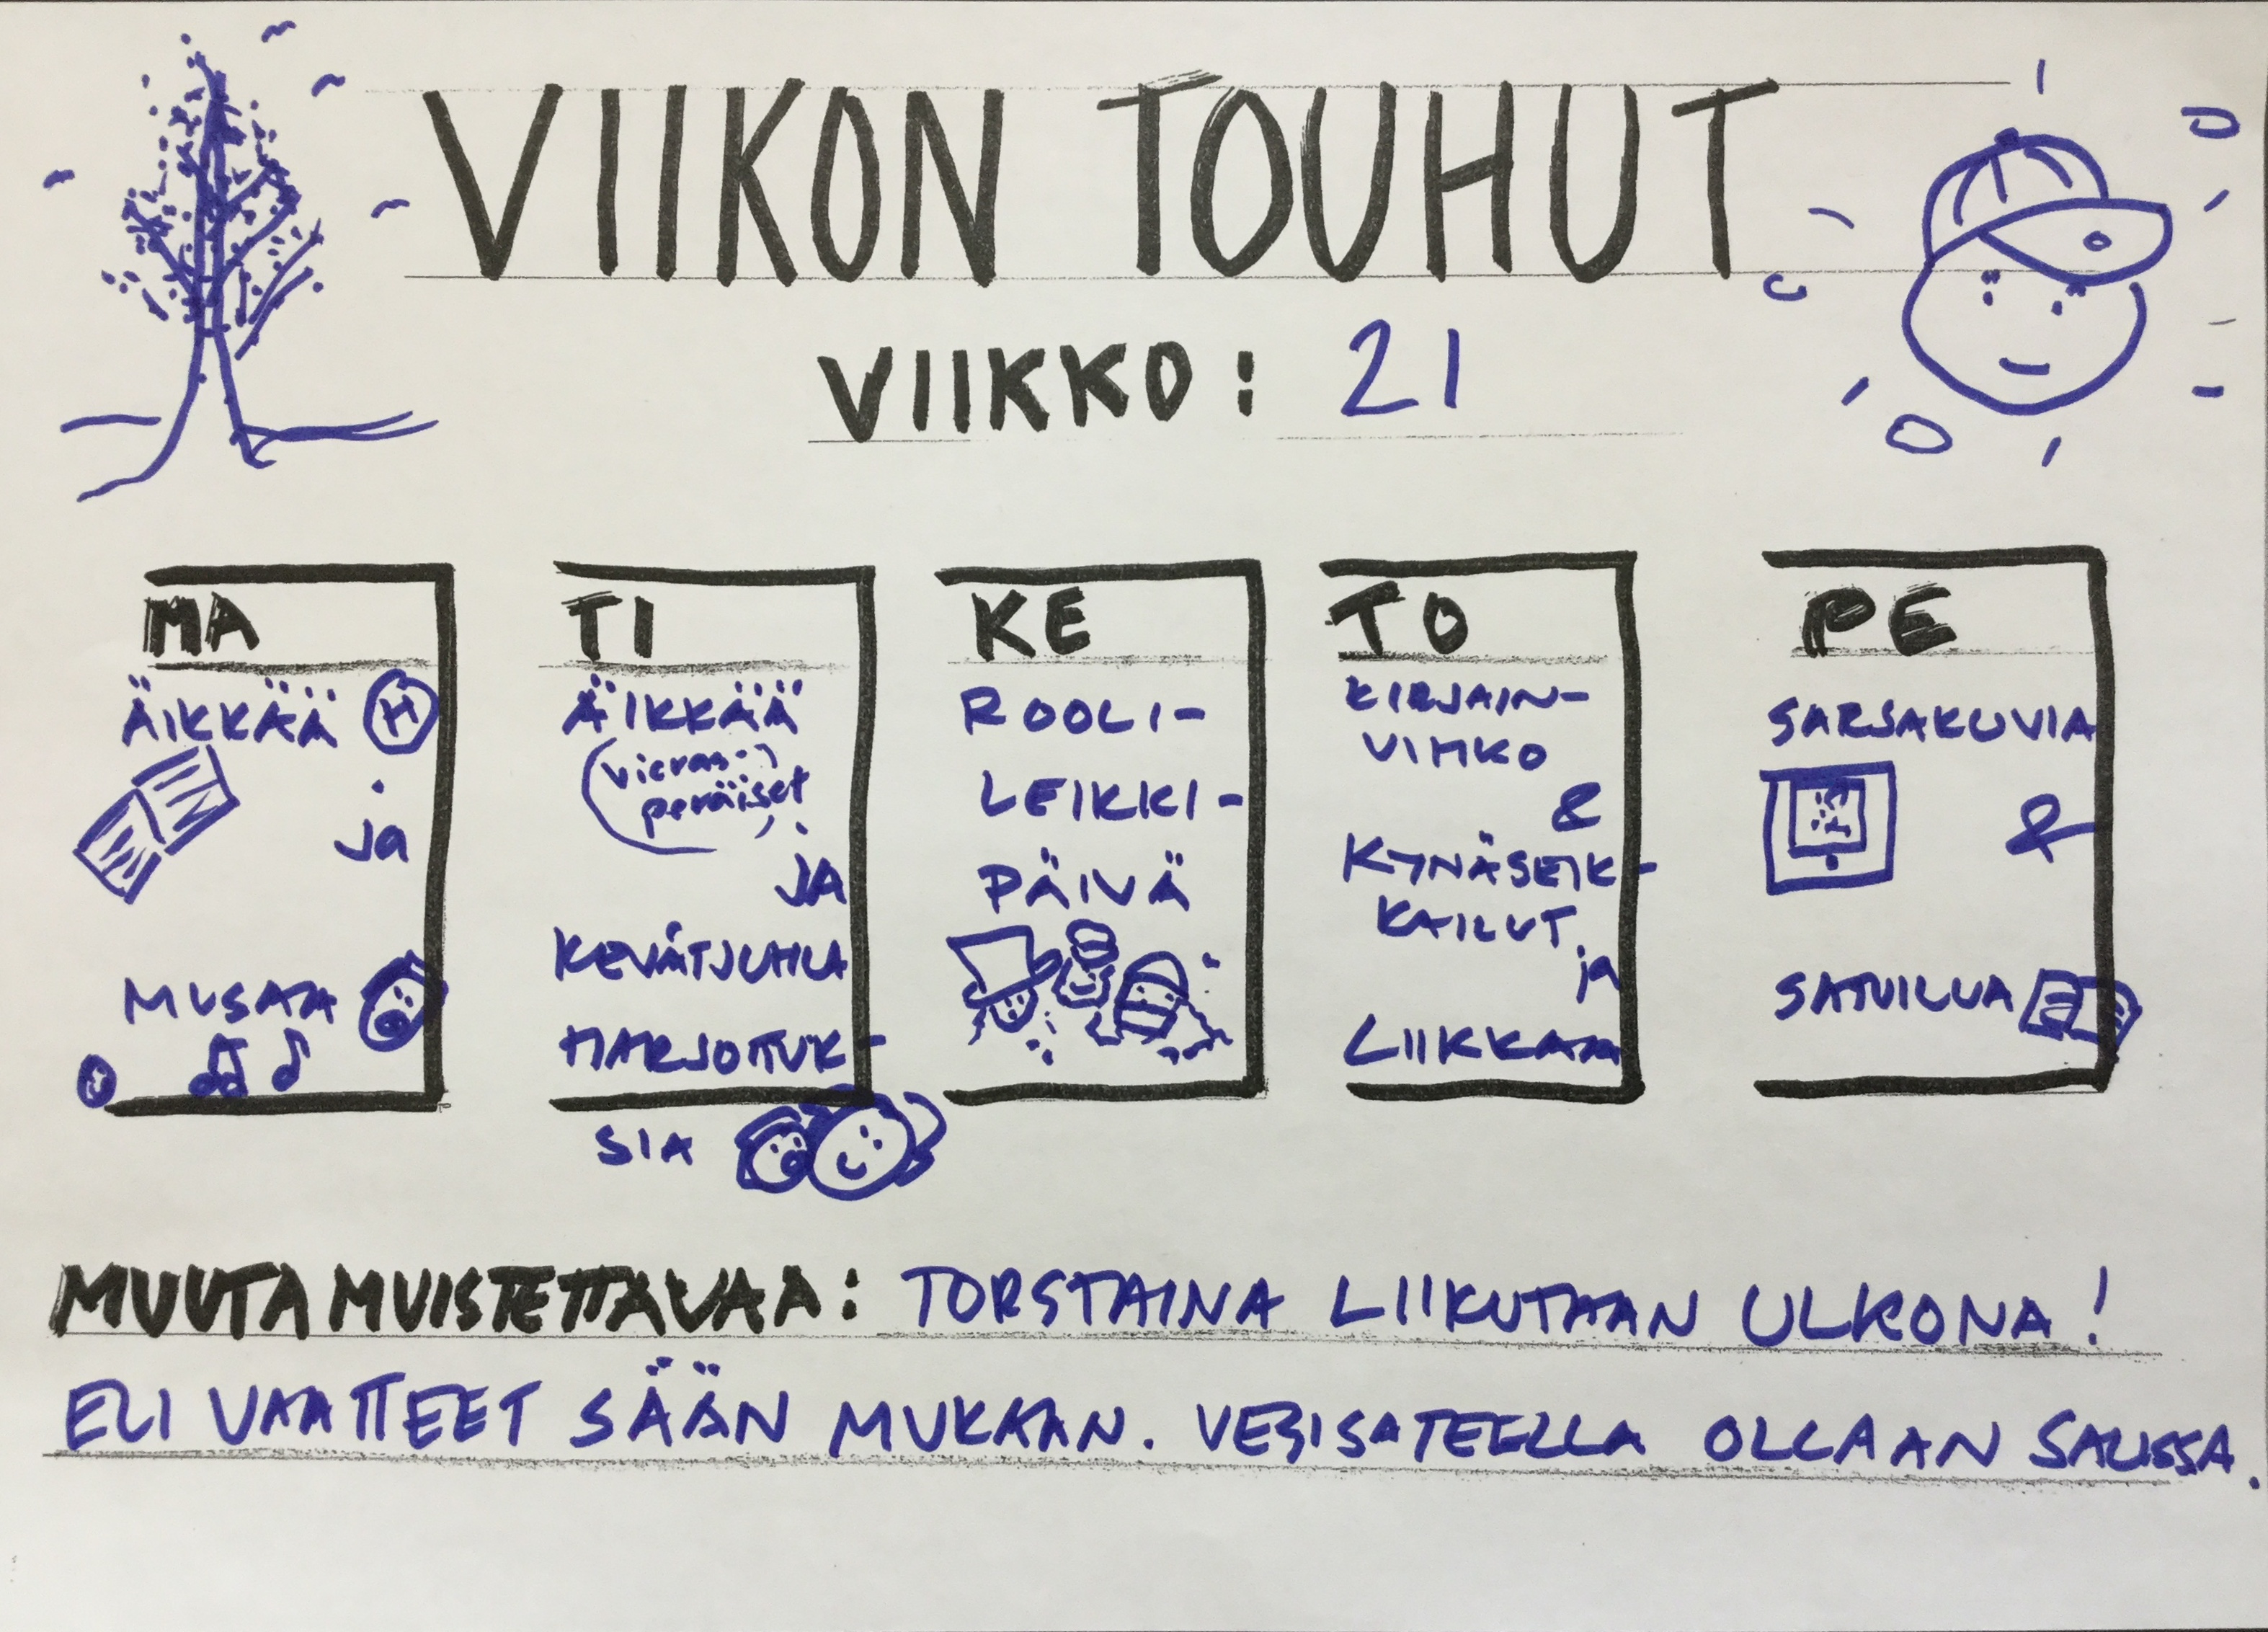 VIIKON TOUHUT
VIIKKO: 21
MA
ÄIKKÄÄ H
ja
MUSAA
TI
ÄIKKÄÄ
(vieras-
peräiset)
JA
KEVÄTJUHLA
HARJOITUK-
SIA
KE
ROOLI-
LEIKKI-
PÄIVÄ
TO
KIRJAIN-
VIHKO
&
KYNÄSEIK-
KAILUT
ja
LIIKKAA
PE
SARJAKUVIA
&
SATUILUA
MUUTA MUISTETTAVAA: TORSTAINA LIIKUTAAN ULKONA!
ELI VAATTEET SÄÄN MUKAAN. VESISATEELLA OLLAAN SALISSA.